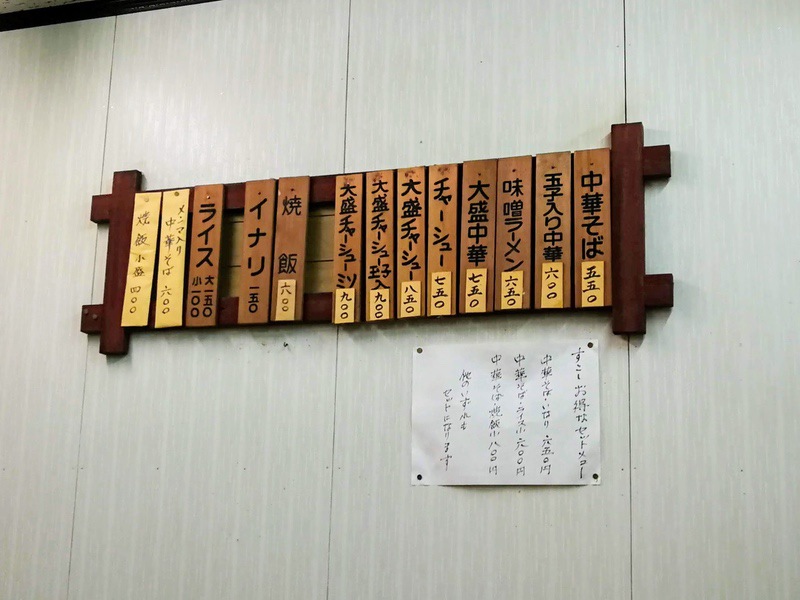 中華そば 五五〇
玉子入り中華 六〇〇
味噌ラーメン 六五〇
大盛中華 七五〇
チャーシュー 七五〇
大盛チャーシュー 八五〇
大盛チャーシュー玉子入 九〇〇
大盛チャーシューミソ 九〇〇
焼飯 六〇〇
イナリ 一五〇
ライス 大一五〇 小一〇〇
メンマ入り
中華そば 六〇〇
焼飯小盛 四〇〇
すこしお得なセットメニュー
中華そば・いなり 六五〇円
中華そば・ライス小 六〇〇円
中華そば・焼飯小 八〇〇円
他のいずれも
セットになります